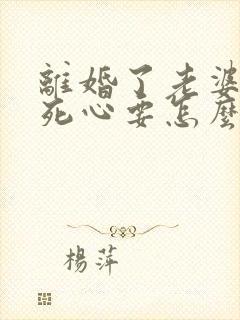 離婚了老婆
死心要怎麼
楊萍